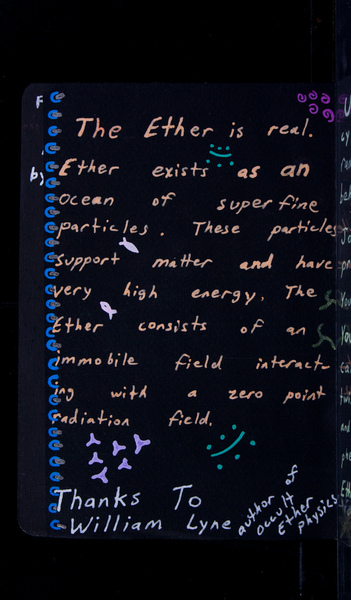 The Ether is real.
Ether exists as an
ocean of superfine
particles. These particles
support matter and have
very high energy. The
Ether consists of an
immobile field interact-
ing with a zero point
radiation field.
Thanks To
William Lyne
author of
occult
Ether
physics